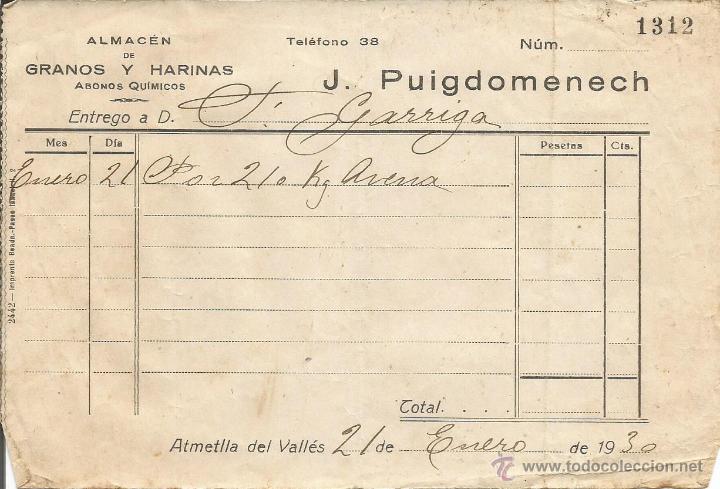 1312
ALMACÉN
DE
GRANOS Y HARINAS
ABONOS QUÍMICOS
Teléfono 38
Núm.
J. Puigdomenech
Entrego a D. F. Garriga
Mes Día Pesetas Cts.
Enero 21 Por 210 Kg Avena
Total. . . .
Atmetlla del Vallés 21 de Enero de 1930
2442 — Imprenta
todocoleccion
www.todocoleccion.net